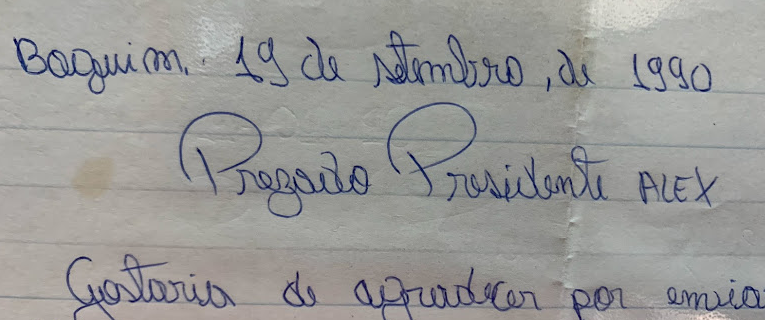 Baguim. 19 de setembro, de 1990
Prezado Presidente ALEX
Gostaria de agradecer por envia